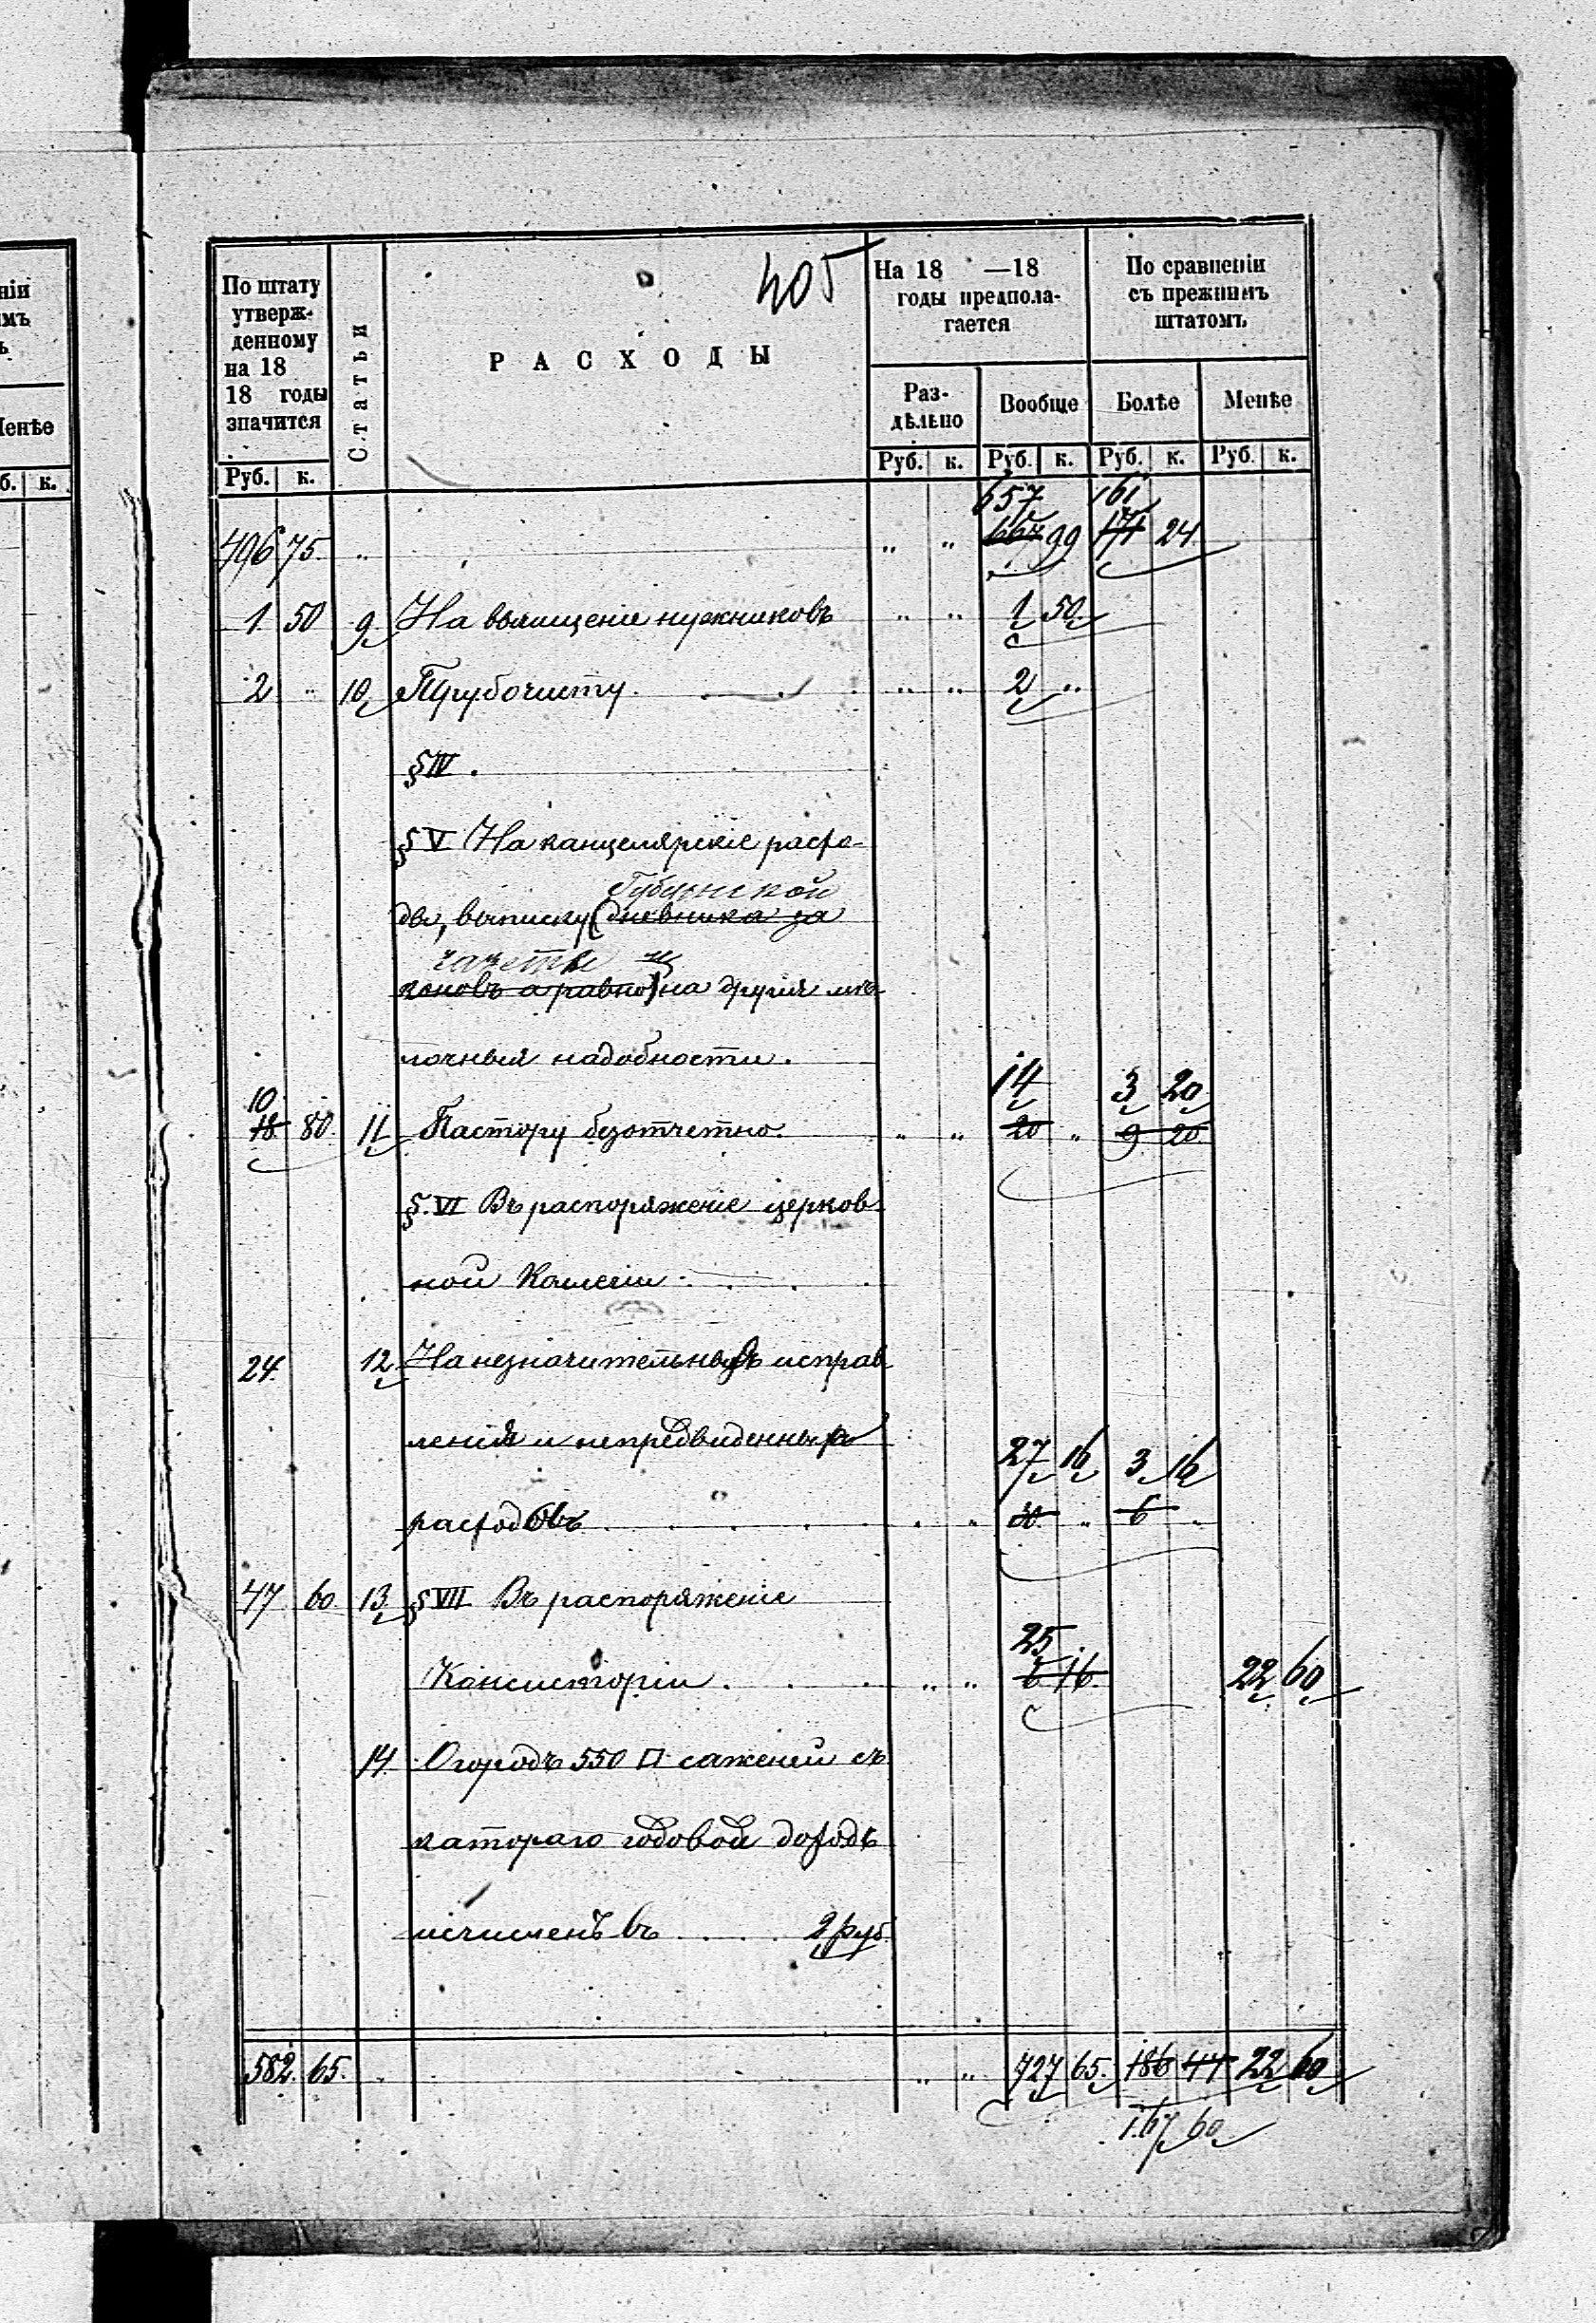 ніи
имъ
ъ
Менѣе
б. к.
405
По штату утвержденному на 18 18 годы значится
Статьи
РАСХОДЫ
На 18 —18 годы предполагается
По сравненіи съ прежнимъ штатомъ
Раз-дѣльно Вообще Болѣе Менѣе
Руб. к. Руб. к. Руб. к. Руб. к. Руб. к.
657 161
496 75 „ „ „ 667 99 171 24
1 50 9 На вычищеніе нужниковъ „ „ 1 50
2 „ 10 Трубочисту „ „ 2 „
§ IV.
§ V На канцелярскіе расхо-
Губернской
ды, выписку (дневника за
газеты и
коновъ а равно) на другія мѣ-
лочныя надобности.
10 14 3 20
18 80 11 Пастору безотчетно. „ „ 20 „ 9 20
§. VI Въ распоряженіе церков
ной Колегіи
24 12 На незначительныя исправ
ленія и непредвиденных
27 16 3 16
расходовъ „ „ 30 „ 6 „
47 60 13 § VII Въ распоряженіе
25
Консисторіи „ „ 6 16 22 60
14 Огородъ 550 □ саженей съ
катораго годовой доходъ
исчисленъ въ 2 руб
582 65 „ „ 727 65 186 44 22 60
167 60